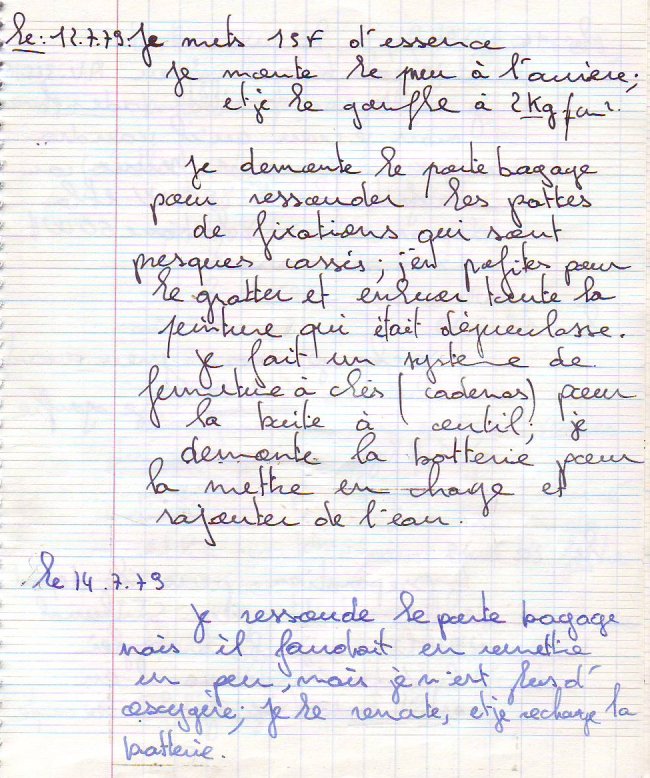 Le : 12.7.79. Je mets 15F d'essence
je monte le pneu à l'arrière;
et je le gonfle à 2Kg/cm².
je demonte le porte bagage
pour ressouder les pattes
de fixations qui sont
presques cassés; j'en profites pour
le gratter et enlever toute la
peinture qui était dégueulasse.
je fait un système de
fermeture à clés (cadenas) pour
la boite à outil; je
demonte la batterie pour
la mettre en charge et
rajouter de l'eau.
le 14.7.79
je ressoude le porte bagage
mais il faudrait en remettre
un peu, mais je n'est plus d'
oxygère; je le remonte, et je recharge la
batterie.